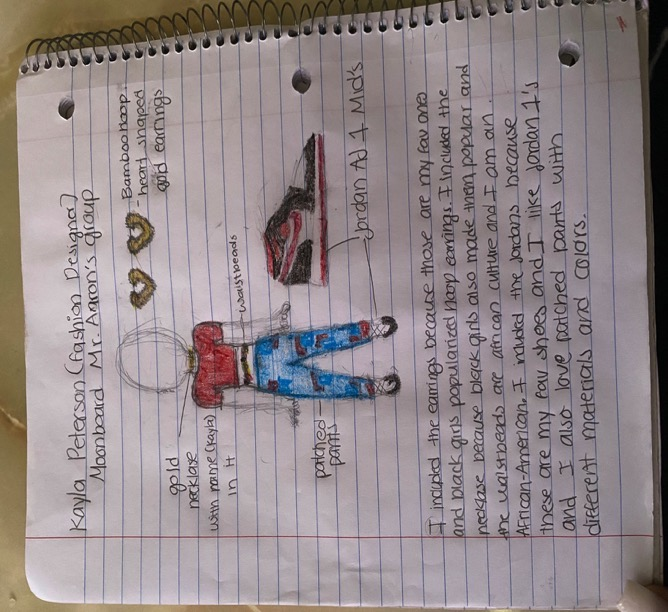 Kayla Peterson (Fashion Designer)
Moonboard Mr. Aaron's group
- Bamboo hoop
heart shaped
gold earrings
gold
necklase
with name (Kayla)
in it
- waistbeads
patched
pants
Jordan AJ 1 Mid's
I included the earrings because those are my fav ones
and black girls popularized hoop earrings. I included the
necklase because black girls also made them popular and
the waistbeads are african culture and I am an
African-American. I included the Jordans because
these are my fav shoes and I like Jordan 1's
and I also love patched pants with
different materials and colors.